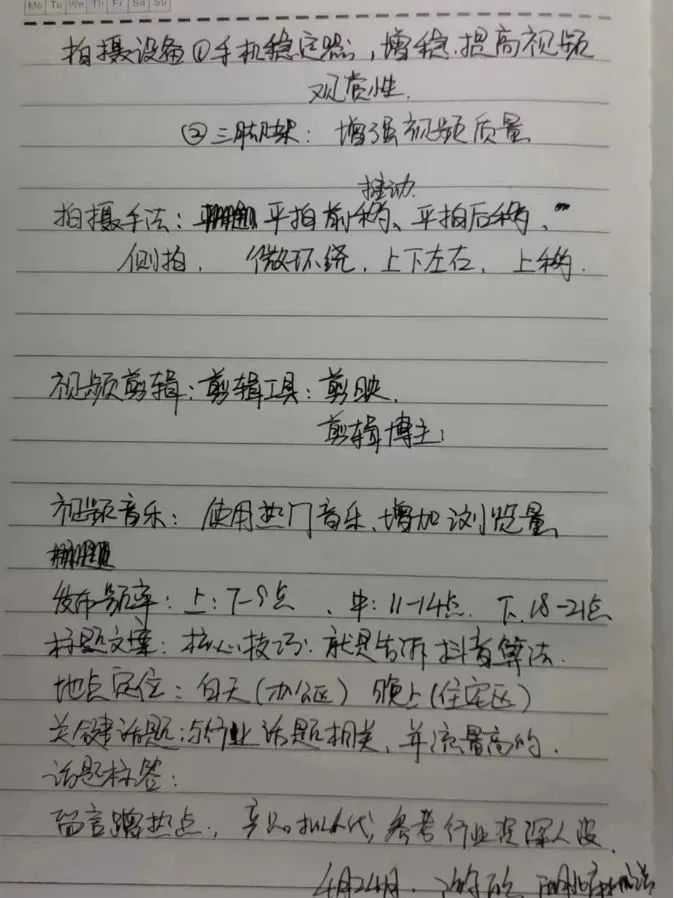 Mo Tu We Th Fr Sa Su
拍摄设备①手机稳定器，增稳.提高视频
观赏性.
②三脚架：增强视频质量
推动.
拍摄手法：平拍前移、平拍后移、
侧拍. 微环绕. 上下左右. 上移.
视频剪辑：剪辑工具：剪映.
剪辑博主：
视频音乐：使用热门音乐.增加浏览量
发布频率：上：7-9点、中：11-14点. 下.18-21点
标题文案：核心技巧.就是告诉抖音算法.
地点定位：白天（办公区）晚上（住宅区）
关键话题：与行业话题相关，并流量高的.
话题标签：
留言蹭热点. 参考行业资深人设.
4月24日.